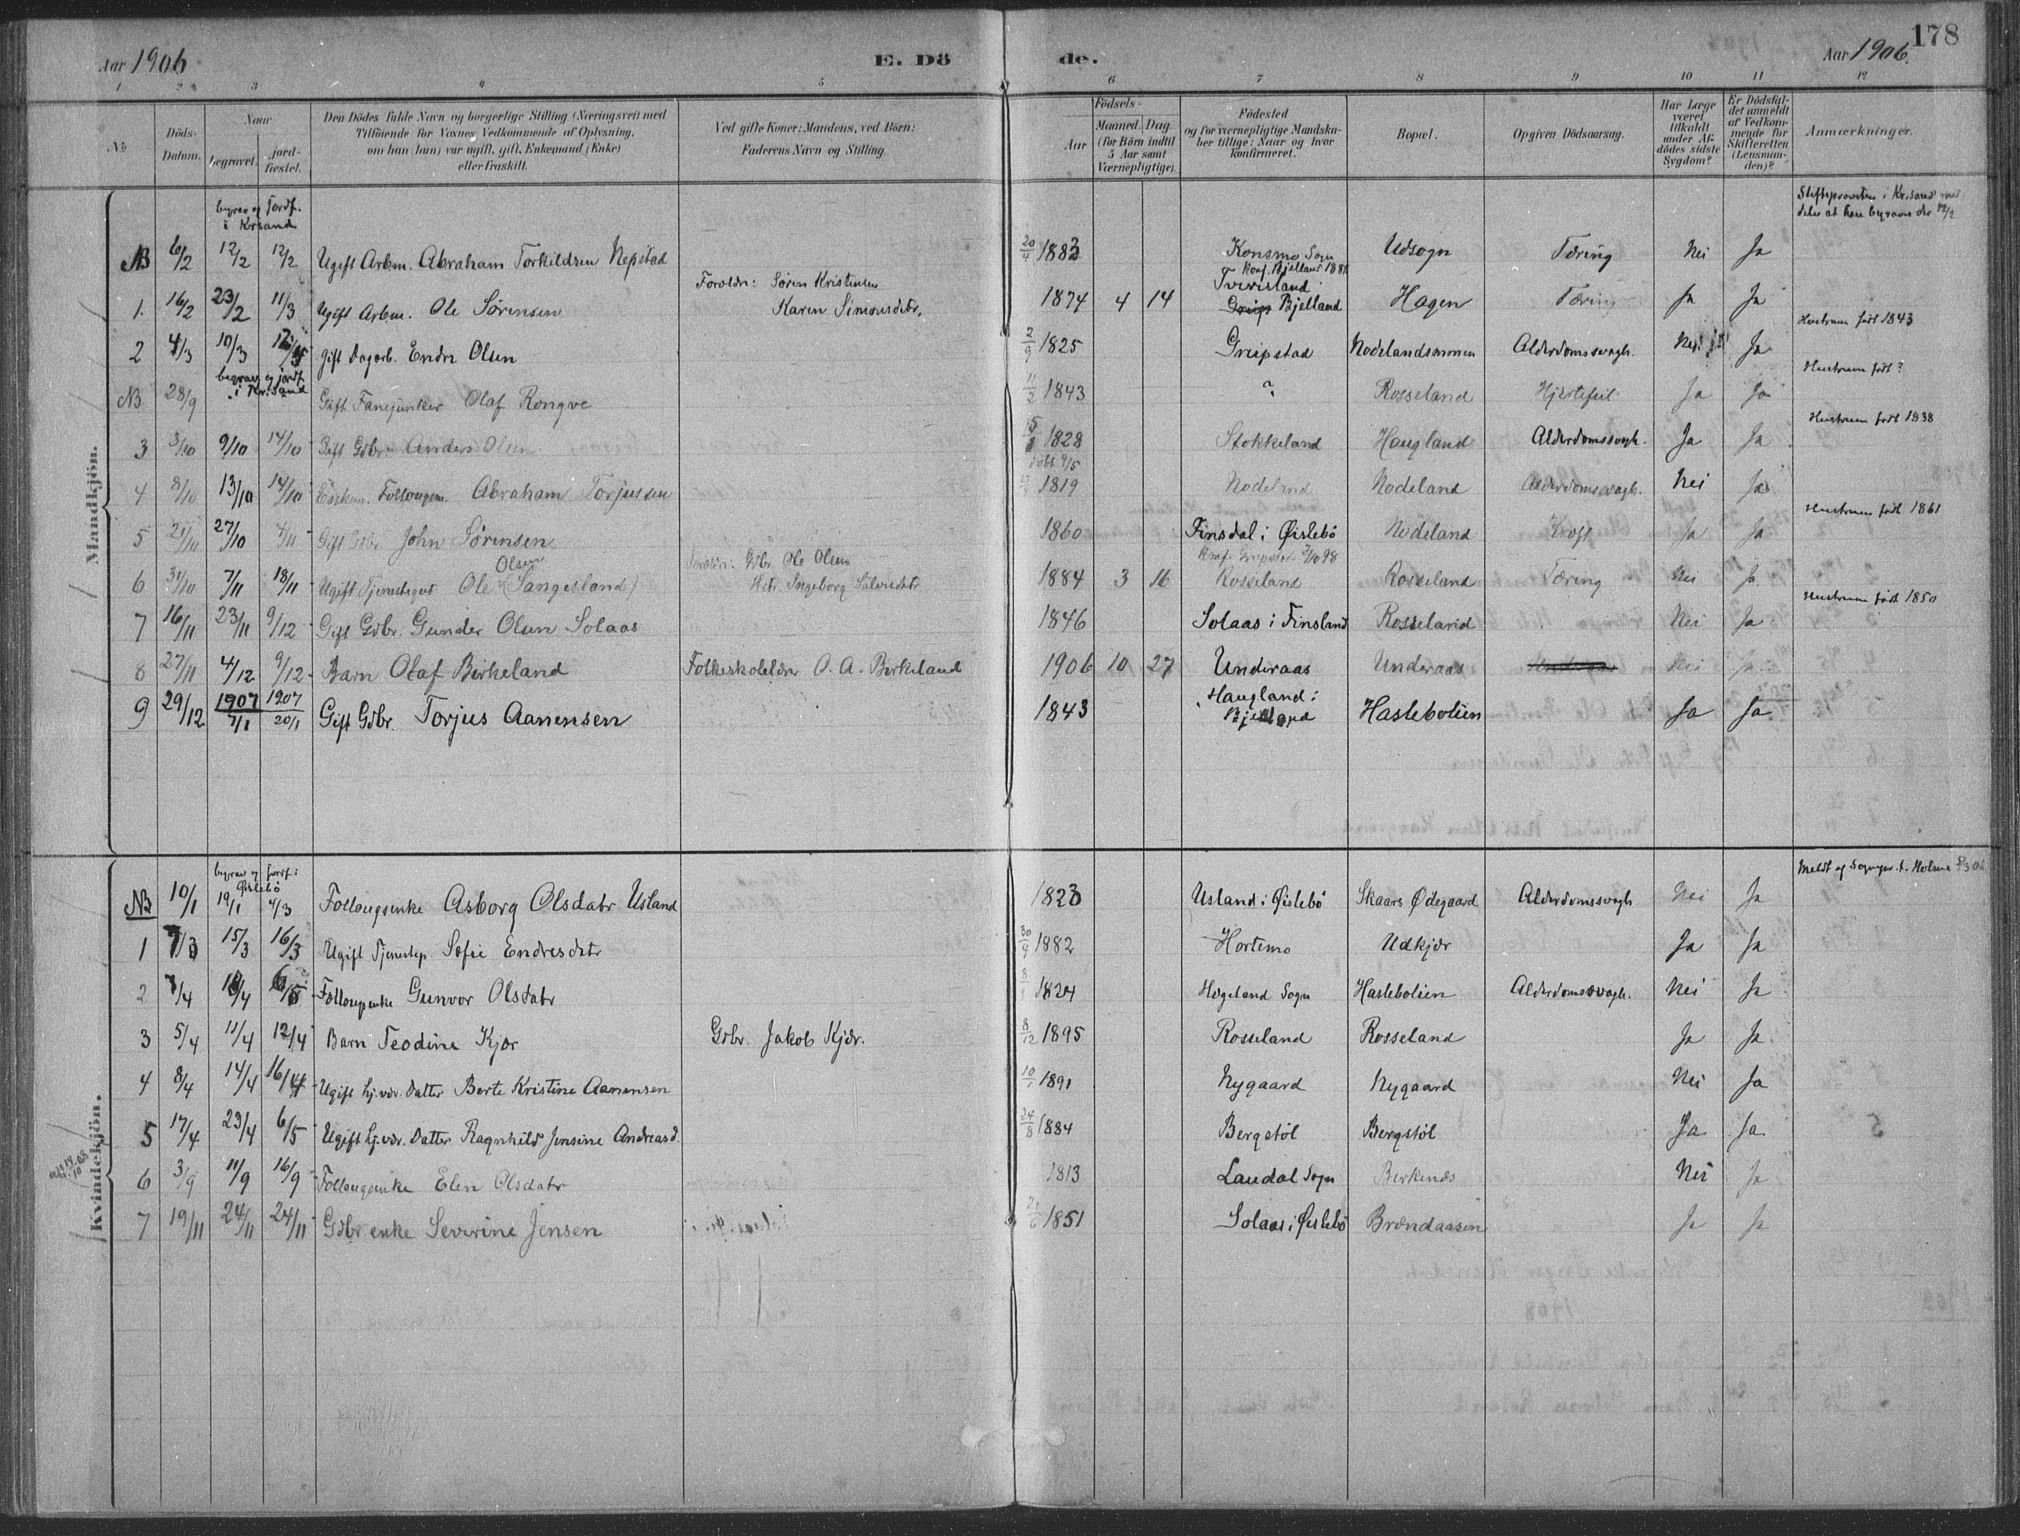 178
Aar 1906
E. Dö de.
Aar 1906.
1 2 3 4 5 6 7 8 9 10 11 12
No
Döds-Datum.
Naar
begravet.
jord-fæstet.
Den Dödes fulde Navn og borgerlige Stilling (Næringsvei) med
Tilföiende for Voxnes Vedkommende af Oplysning,
om han (hun) var ugift, gift, Enkemand (Enke)
eller fraskilt.
Ved gifte Koner: Mandens, ved Börn:
Faderens Navn og Stilling.
Födsels-
Aar
Maaned. Dag.
(for Börn indtil
5 Aar samt
Værnepligtige).
Födested
og for værnepligtige Mandsku-
ber tillige: Naar og hvor
konfirmeret.
Bopæl.
Opgiven Dödsaarsag.
Har Læge
været
tilkaldt
under Af-
dödes sidste
Sygdom?
Er Dödsfal-
det anmeldt
af Vedkom-
mende for
Skifteretten
(Lensman-
den)?
Anmærkninger.
Mandkjön.
begrav og jordf.
i Krsand
Stiftsprovsten i Kr.sand med
deler at have begravet der 12/2
NB 6/2 12/2 12/2 Ugift Arbm. Abraham Torkildsen Nepstad 20/4 1883 Konsmo Sogn Udsogn Tæring Nei Ja
Konf. Bjelland 1881
Forældr: Søren Kristensen
Tveitsland
1. 16/2 23/2 11/3 Ugift Arbm. Ole Sørensen Karen Simonsdtr. 1874 4 14 Greip Bjelland Hagen Tæring Ja Ja
Hustruen født 1843
2 4/3 10/3 Gift Dagarb. Endre Olsen 2/9 1825 Greipstad Nodelandsmoen Alderdomssvagh. Nei Ja
begrav og jordf.
i Kr.sand
Hustruen født ?
NB 28/9 Gift Fanejunker Olaf Rongve 11/2 1843 ? Rosseland Hjertefeil Ja Ja
Hustruen født 1838
3 3/10 9/10 14/10 Gift Gdbr. Anders Olsen 1828 Stokkeland Haugland Alderdomssvagh. Ja Ja
døbt 9/5
4 8/10 13/10 14/10 Enkem. Follaugsm. Abraham Torjussen 1819 Nodeland Nodeland Alderdomssvagh. Nei Ja
Hustruen født 1861
5 21/10 27/10 4/11 Gift Gdbr John Sørensen 1860 Finsdal i Øislebø Nodeland Kræft Ja Ja
Olsen
Forældr: Gdbr Ole Olsen
Konf. Greipstad 2/10 98
6 31/10 7/11 18/11 Ugift Tjenestegut Ole (Sangesland) Ht. Ingeborg Salvesdtr 1884 3 16 Rosseland Rosseland Tæring Nei Ja
Hustruen født 1850
7 16/11 23/11 9/12 Gift Gdbr. Gunder Olsen Solaas 1846 Solaas i Finsland Rosseland Nei Ja
8 27/11 4/12 9/12 Barn Olaf Birkeland Folkeskolelærer O. A. Birkeland 1906 10 27 Underaas Underaas Nei Ja
9 29/12 1907 7/1 1907 20/1 Gift Gdbr. Torjus Aanensen 1843 Haugland i Bjelland Haslebolien Ja Ja
Kvindekjön.
begrav og jordf. i
Øislebø
Meldt af Sogнepr. t. Holume
NB 10/1 19/1 4/3 Follaugsenke Asborg Olsdatr Usland 1823 Usland i Øislebø Skaars Ødegaard Alderdomssvagh Nei Ja
1 7/3 15/3 16/3 Ugift Tjenestep. Sofie Endresdatr 30/9 1882 Hortemo Udkjær Ja Ja
2 7/4 6/5 Follaugsenke Gunvor Olsdatr 1824 Hægeland Sogn Haslebolien Alderdomssvagh. Nei Ja
3 5/4 11/4 12/4 Barn Teodine Kjær Gdbr. Jakob Kjær. 8/12 1895 Rosseland Rosseland Ja Ja
4 8/4 14/4 16/4 Ugift hj.vær. Datter Berte Kristine Aanensen 10/1 1891 Nygaard Nygaard Nei Ja
5 17/4 23/4 6/5 Ugift hj.vær. Datter Ragnhild Jensine Andreasd. 24/8 1884 Bergstøl Bergstøl Ja Ja
6 3/9 11/9 16/9 Follaugsenke Elen Olsdatr 1813 Laudal Sogn Birkenes Nei Ja
7 19/11 24/11 24/11 Gdbr enke Severine Jensen 21/6 1851 Solaas i Øislebø Brændaasen Ja Ja